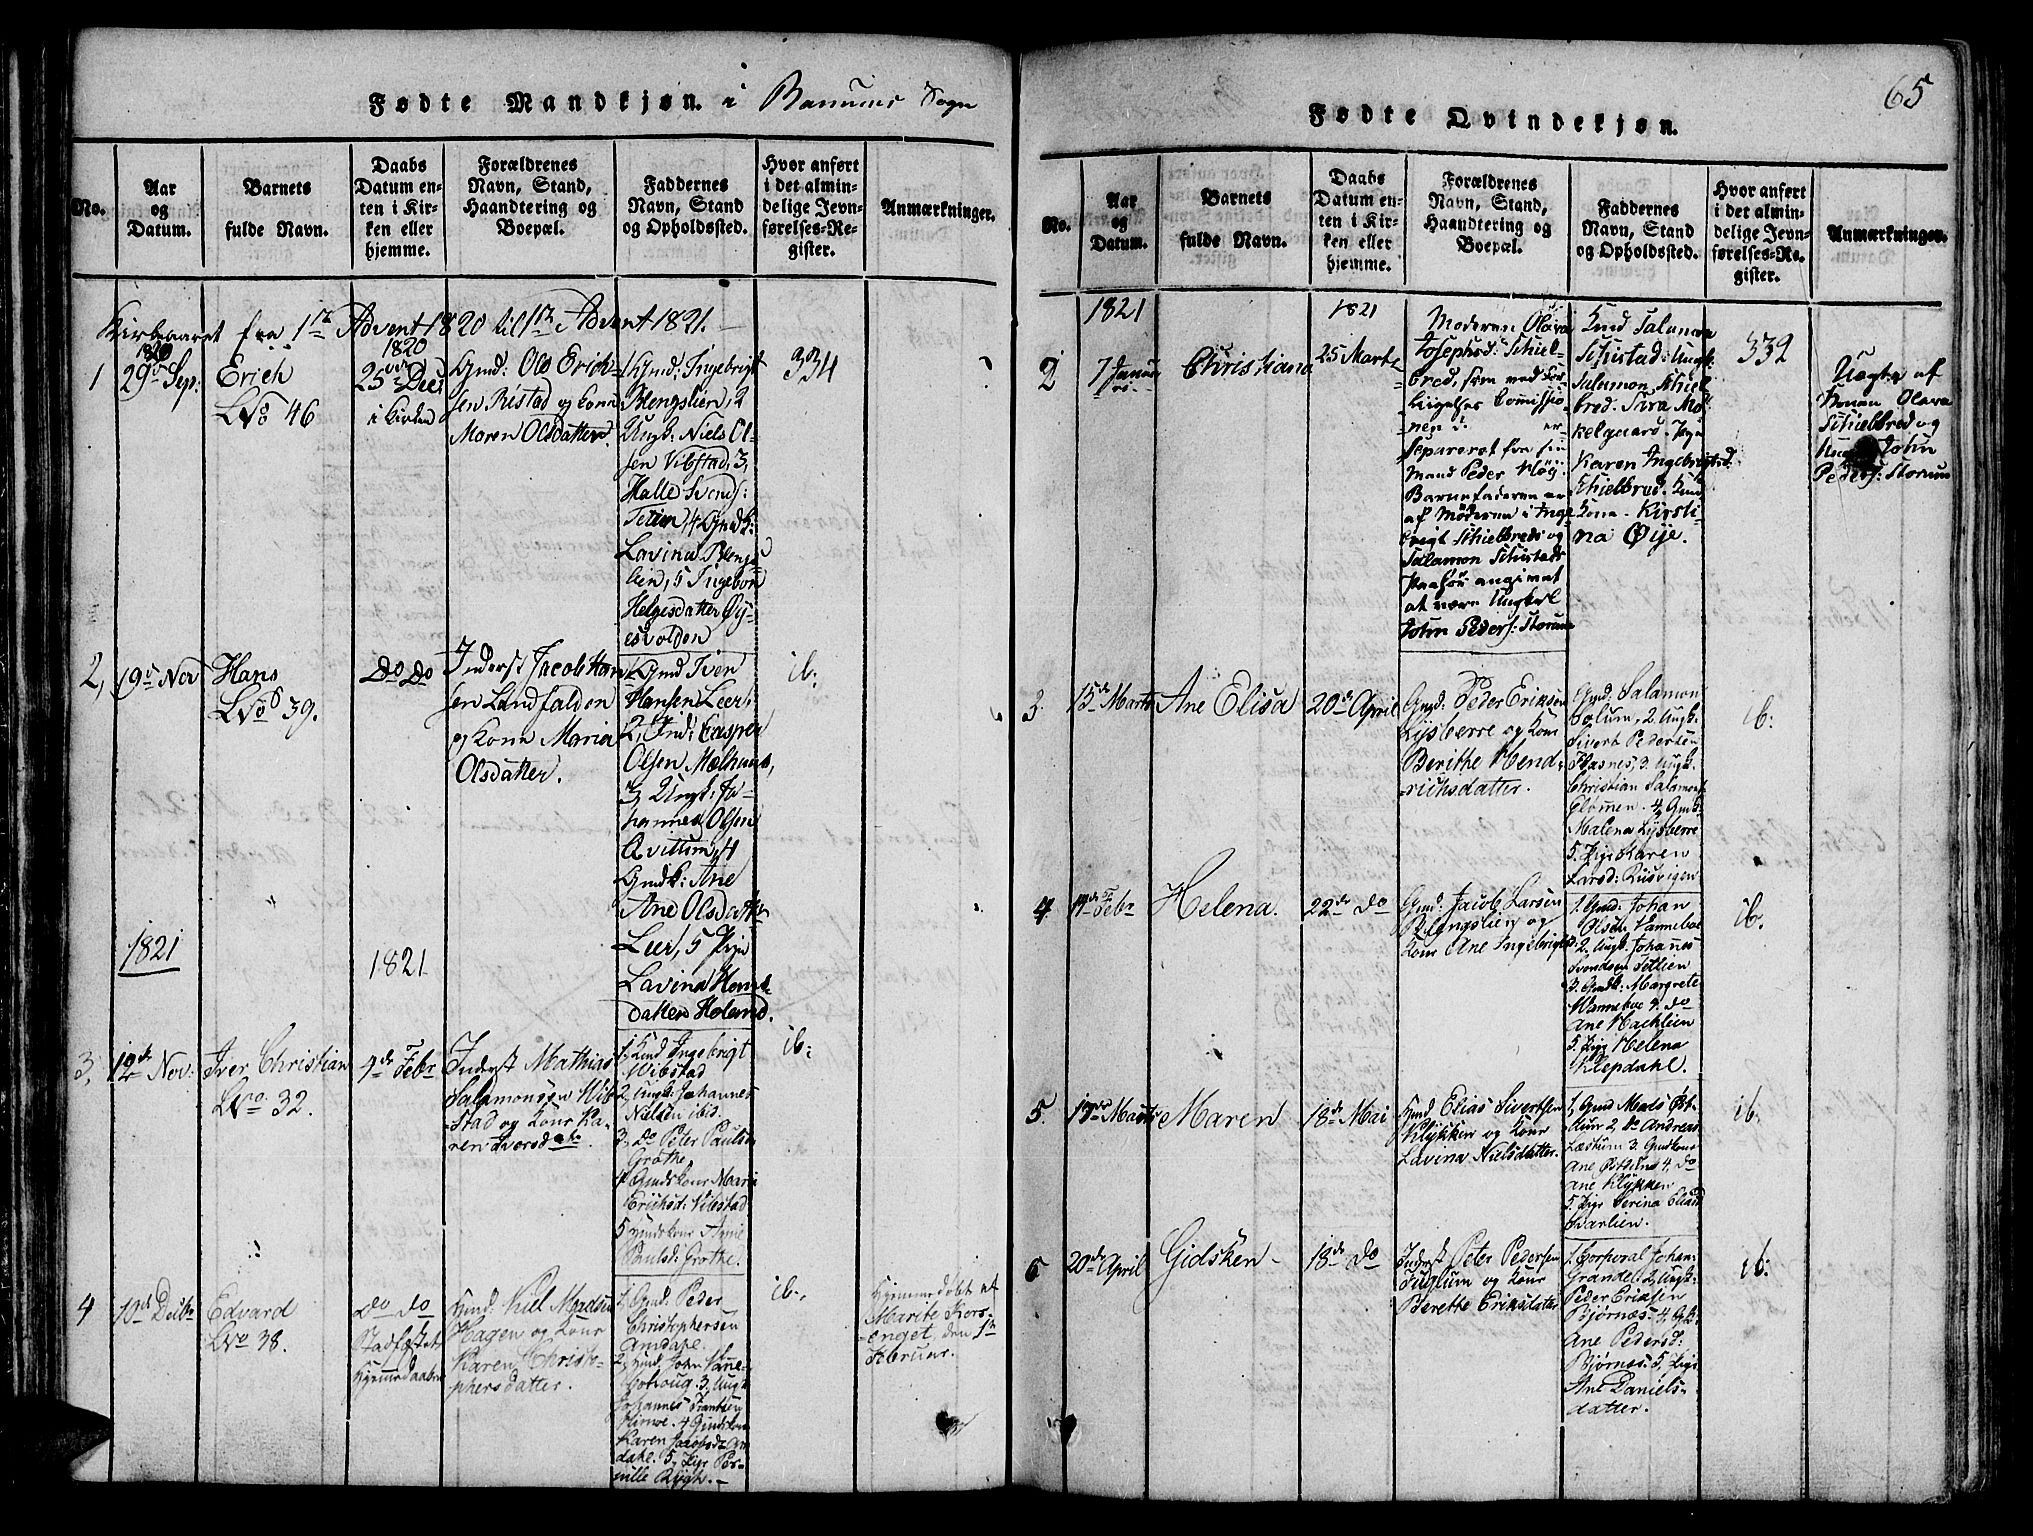 Fødte Mandkjøn. i Ranums Sogn
No.
Aar
og
Datum.
Barnets
fulde Navn.
Daabs
Datum en-
ten i Kir-
ken eller
hjemme.
Forældrenes
Navn, Stand,
Haandtering og
Boepæl.
Faddernes
Navn, Stand
og Opholdssted.
Hvor anført
i det almin-
delige Jevn-
førelses-Re-
gister.
Anmærkninger.
Kirkeaaret fra 1ste Advent 1820 til 1ste Advent 1821.
1
1820
29de Sep:
Erich
LNo 46
1820
25de Dec:
i Kirken
Gmd: Ole Erich-
sen Ristad og Kone
Maren Olsdatter.
1 Gmd: Ingebrigt
Blengslien, 2
Ungk: Niels Ol-
sen Vibstad, 3,
Halle Svends:
4 Gmdk:
Lavina Blengs-
lien, 5 Ingebor
Helgesdatter Øy-
esvolden
334
2,
19de Nov
Hans
LNo 39.
Do Do
Inderst Jacob Han-
sen Landfalden
og Kone Maria
Olsdatter.
1 Gmd Iver
Hansen Leer,
2, Ind: Casper
Olsen Mælhuus,
3, Ungk: Jo-
hannes Olsen
Qvittum, 4
Gmdk: Ane
Ane Olsdatter
Leer, 5 Pige
Lavina
datter Høland.
ib:
1821
1821
3,
12de Nov:
Iver Christian
LNo. 32.
4de Febr
Inderst Mathias
Salamonsen Wib-
stad og Kone Ka-
ren Iversdatr
1, Gmd Ingebrigt
Wibstad
2, Ungk: Johannes
Nielsen ibid.
3, Do Peter Paulsen
Grøthe,
4 Gmdskone Maria
Erichsd: Vibstad
5 Gmdskone
Paulsd: Grøthe.
ib:
4
19de Decbr
Edvard
LNo 38.
Do Do
Stadfæstet
Hjemmedaaben
Gmd: Kiel Madsen
Hagen og Kone
Karen Christo-
phersdatter.
1, Gmd: Peder
Christophersen
Amdahl.
2, Gmd John Vanne-
boe og 3, Ungk
Johannes Frantsen
4 Gmdskone
Karen Jacobsdr Am-
dahl. 5, Pige Per-
nille Rygh.
ib.,
Hjemmedøbt af
Marite Kors-
enget, den 1ste
Februar.
65
Fødte Qvindekjøn.
No.
Aar
og
Datum.
Barnets
fulde Navn.
Daabs
Datum en-
ten i Kir-
ken eller
hjemme.
Forældrenes
Navn, Stand,
Haandtering og
Boepæl.
Faddernes
Navn, Stand
og Opholdssted.
Hvor anført
i det almin-
delige Jevn-
førelses-Re-
gister.
Anmærkninger.
1821
1821
2
7 Januar
Christiana
25 Marts
Moderen Olava
Josephsd: Schiel-
bred, som ved For-
ligelses Commissio-
nen er
separeret fra sin
Mand Peder Kløg.
Barnefaderen er
af Moderen i Inge-
brigt Schielbreds og
Salamon Schistads
Paahør angivet
at være Ungkarl
John Peders: Storum
Gmd Salamon
Schistad: Ungk:
Salamon Schiel-
bred. Sira Mø-
kelgaard. Pige
Karen Ingebrigtsd
Schielbred. Gmd
Kone. Kirsti-
na Øije.
332
Uægte af
Konen Olava
Schielbred og
John
Peders: Storum
3.
15de Marts
Ane Elisa
20de April
Gmd: Peder Eriksen
Lysberre og Kone
Berithe Hend-
richsdatter.
Gmd: Salamon
Solum, 2 Ungk:
Sivert Pedersen
Flasnes, 3. Ungk.
Christian Salamons
Glømen. 4, Gmdk:
Malena Lysberre
5. Pige Karen
Larsd: Kusvigen
ib:
4.
14de Febr
Helena.
22de Do
Gmd: Jacob Larsen
Blengslien og
Kone Ane Ingebrigtsd:
1. Gmd: Johan
Olsen Vanneboe
2. Ungk. Johannes
Svendsen Tetlien
3. Gmdk: Margrete
Wanneboe 4. Do
Ane Hachlien
5. Pige Helena
Klepdahl.
ib.
5.
17de Marts
Maren
18de Mai
Gmd Elias Sivertsen
Klykken og Kone
Lavina Nielsdatter.
1, Gmd Mads Øst-
2 Do Andreas
Læstum 3. Gmdkone
Ane 4. Do
Ane Klykken
5. Pige Serina
Svarlien.
ib.
6
20de April
Gidsken
18de Do
Inderst Peter Pedersen
Fuglum og Kone
Berette Eriksdatter
1. Corporal Johan
Grande, 2 Ungk:
Peder Eriksen
Bjørnes. 4, Gk:
Ane Pedersd:
Bjørnes. 5, Pige
Ane Daniels-
datter.
ib: